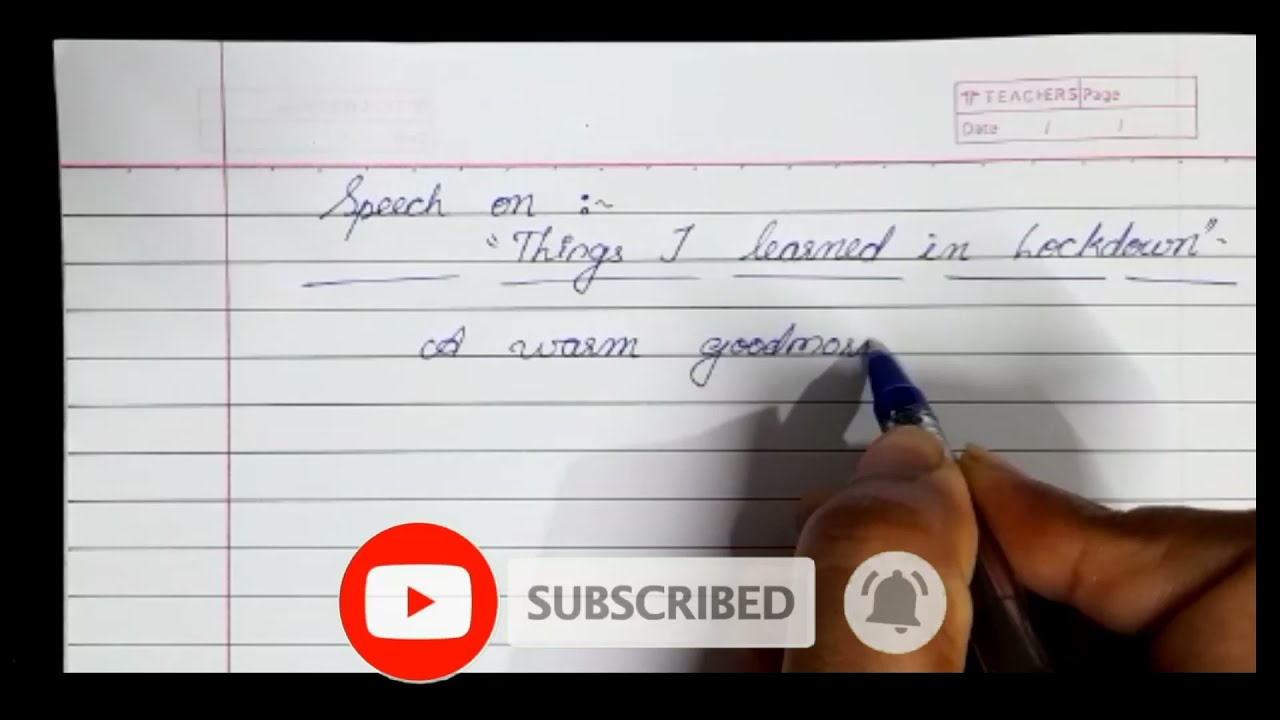 TEACHERS Page
Date / /
Speech on :~
"Things I learned in Lockdown"-
A warm goodmor
SUBSCRIBED